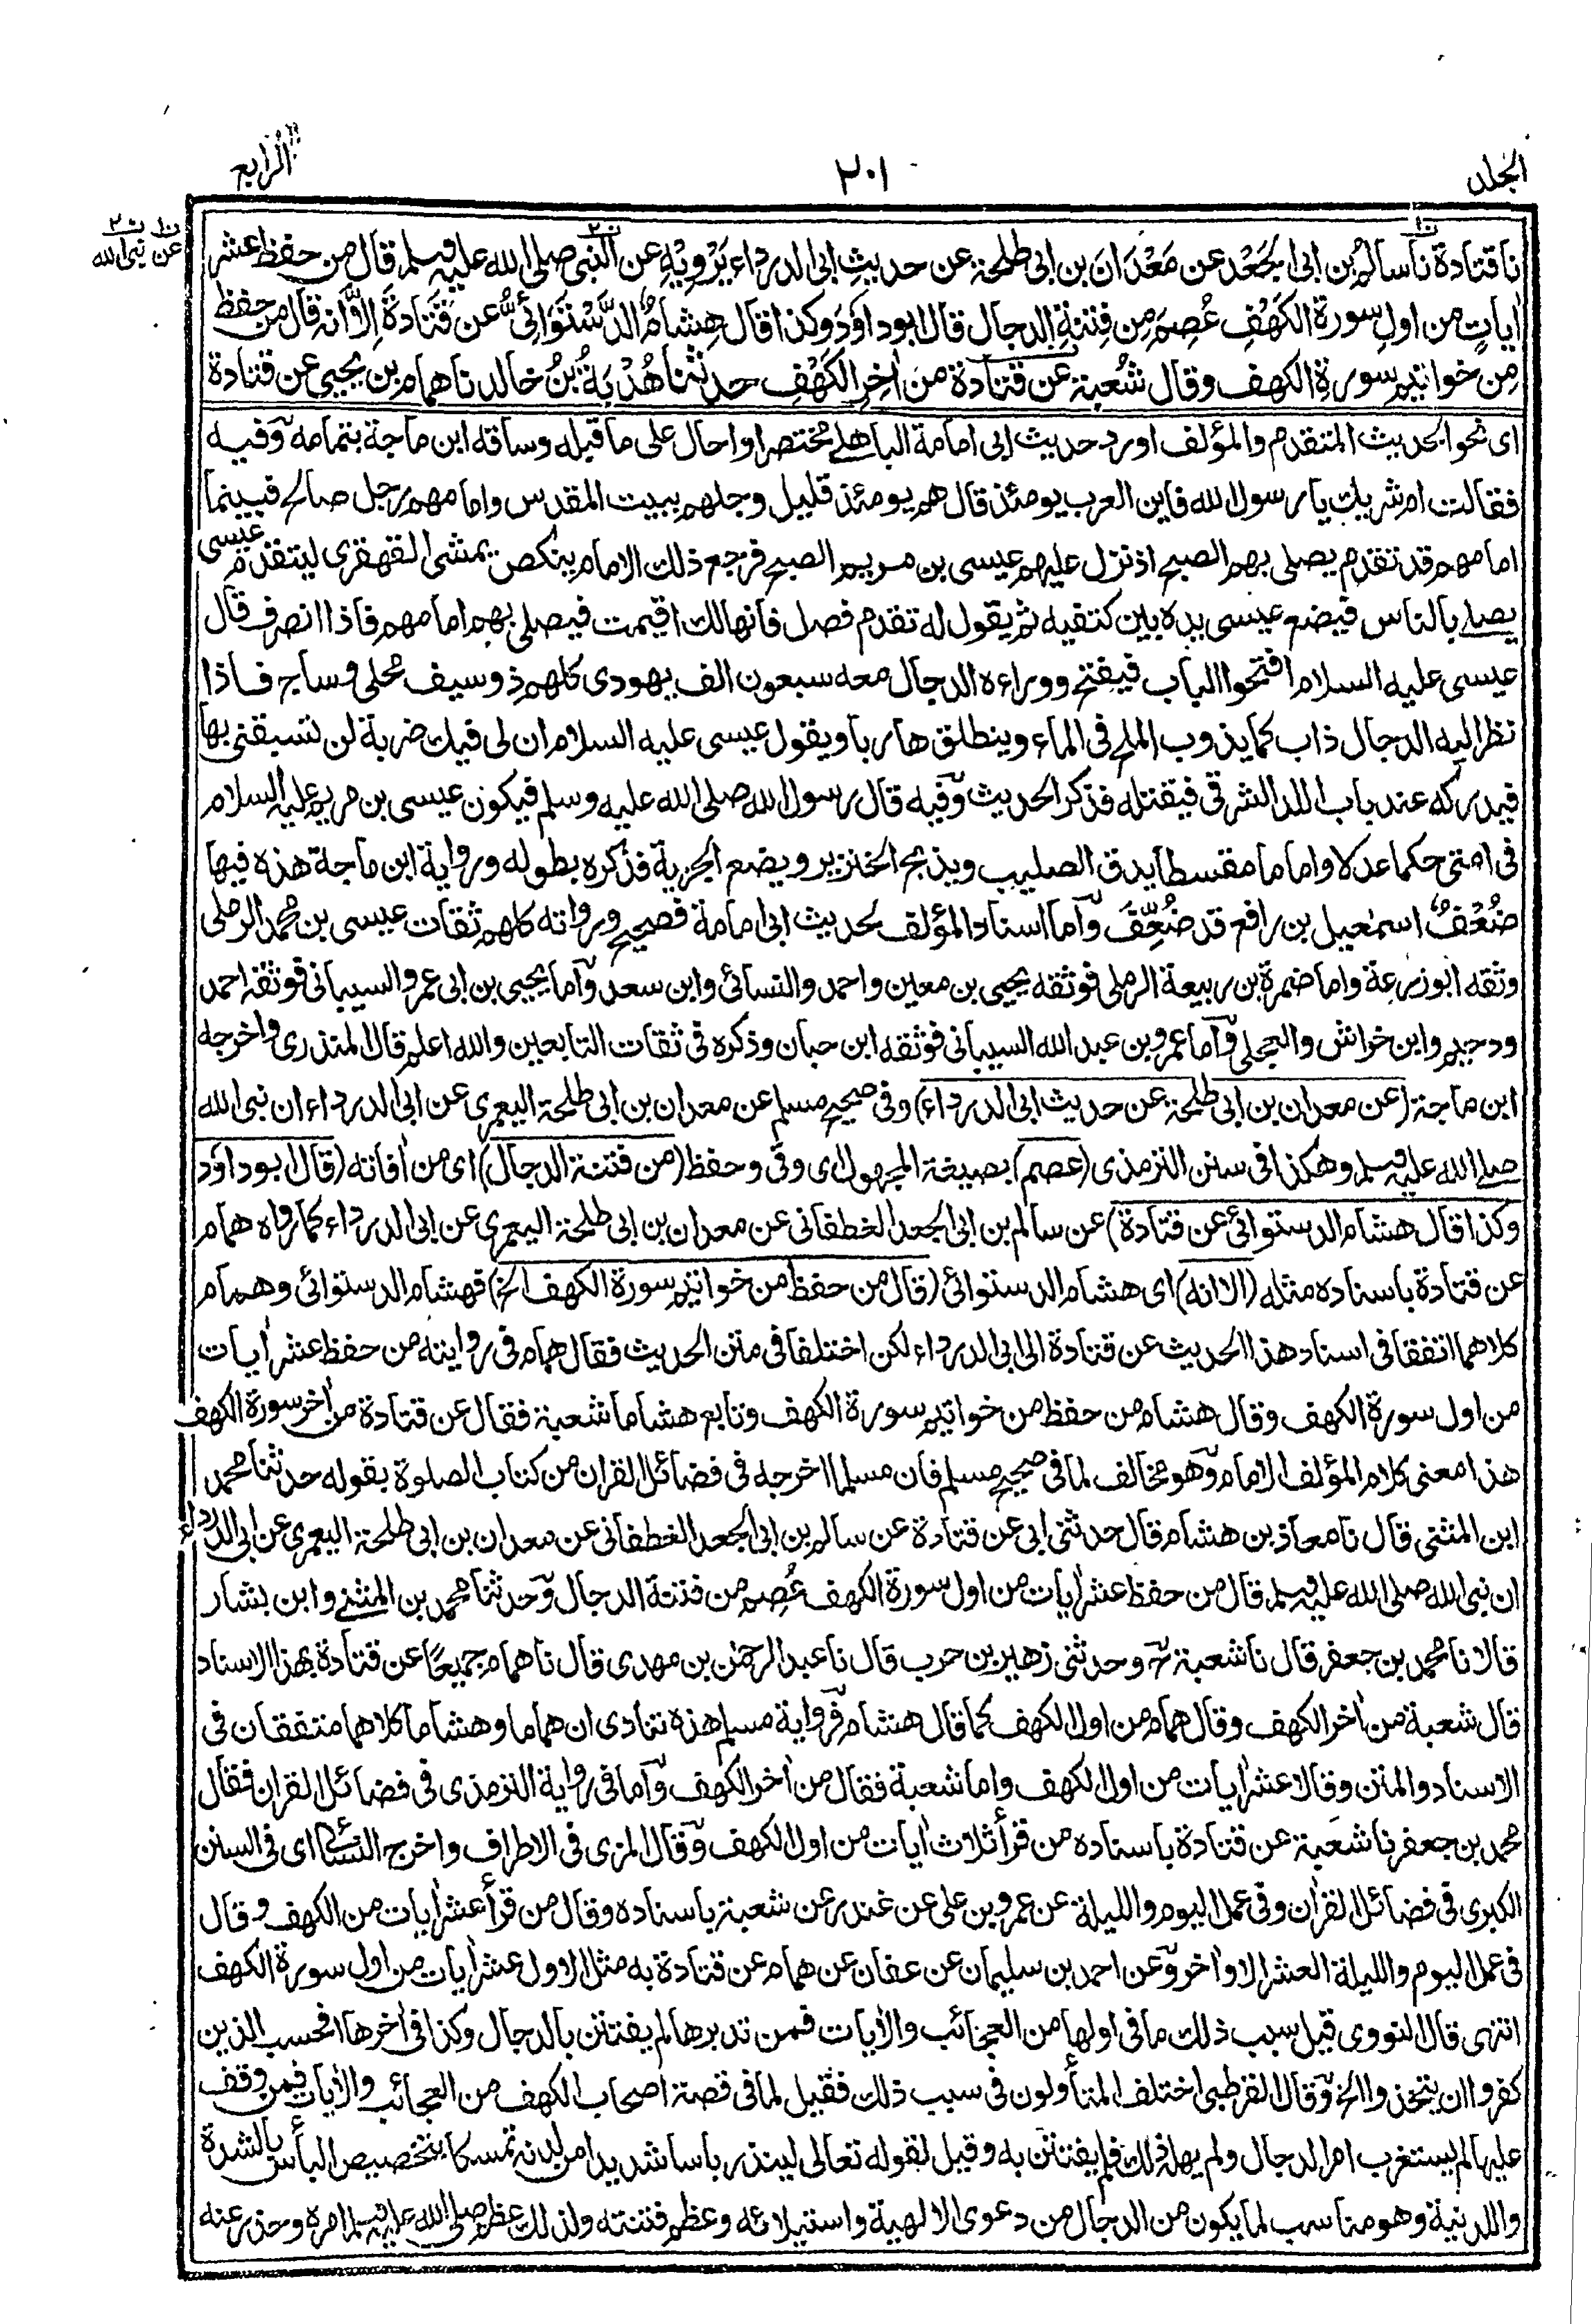 الجلد
٢٠١
الرابع
ن١ ن٢
عن نبي الله
نا قتادة نا سالم بن ابى الجَعْد عن مَعْدَانَ بن ابى طلحة عن حديثِ ابى الدرداء يَرْوِيْهِ عن النبى صلى الله عليه وسلم قال من حفظ عشر
اٰياتٍ من اولِ سورة الكَهْفِ عُصِمَ مِن فِتنةِ الدجال قال ابوداؤدَ وكذا قال هِشامٌ الدَّسْتَوَائىُّ عن قَتَادَةَ اِلَّا انه قال من حفظ
مِن خواتيم سورةِ الكهف وقال شُعبة عن قتادة من اٰخِرِ الكَهْفِ حدثنا هُدْبَةُ بْنُ خالد نا همام بن يحيى عن قتادة
اى نحو الحديث المتقدم والمؤلف اورد حديث ابى امامة الباهلے مختصرا واحال على ما قبله وساقه ابن ماجة بتمامه وفيه
فقالت ام شريك يا رسول الله فاين العرب يومئذ قال هم يومئذ قليل وجلهم ببيت المقدس وامامهم رجل صالح فبينما
امامهم قد تقدم يصلى بهم الصبح اذ نزل عليهم عيسى بن مريم الصبح فرجع ذلك الامام ينكص يمشى القهقرى ليتقدم عيسى
يصلے بالناس فيضع عيسى يده بين كتفيه ثم يقول له تقدم فصل فانها لك اقيمت فيصلى بهم امامهم فاذا انصرف قال
عيسى عليه السلام افتحوا الباب فيفتح ووراءه الدجال معه سبعون الف يهودى كلهم ذو سيف محلى وساج فاذا
نظر اليه الدجال ذاب كما يذوب الملح فى الماء وينطلق هاربا ويقول عيسى عليه السلام ان لى فيك ضربة لن تسبقنى بها
فيدركه عند باب اللد الشرقى فيقتله فذكر الحديث وفيه قال رسول الله صلى الله عليه وسلم فيكون عيسى بن مريم عليه السلام
فى امتى حكما عدلا واماما مقسطا يدق الصليب ويذبح الخنزير ويضع الجزية فذكره بطوله ورواية ابن ماجة هذه فيها
ضُعْفٌ اسمٰعيل بن رافع قد ضُعِّفَ واما اسناد المؤلف لحديث ابى امامة فصحيح ورواته كلهم ثقات عيسى بن محمد الرملى
وثقه ابوزرعة واما ضمرة بن ربيعة الرملى فوثقه يحيى بن معين واحمد والنسائى وابن سعد واما يحيى بن ابى عمرو السيبانى فوثقه احمد
ودحيم وابن خراش والعجلى واما عمرو بن عبد الله السيبانى فوثقه ابن حبان وذكره فى ثقات التابعين والله اعلم قال المنذرى واخرجه
ابن ماجة (عن معدان بن ابى طلحة عن حديث ابى الدرداء) وفى صحيح مسلم عن معدان بن ابى طلحة اليعمرى عن ابى الدرداء ان نبى الله
صلے الله عليه وسلم وهكذا فى سنن الترمذى (عصم) بصيغة المجهول اى وقى وحفظ (من فتنة الدجال) اى من اٰفاته (قال ابوداؤد
وكذا قال هشام الدستوائى عن قتادة) عن سالم بن ابى الجعد الغطفانى عن معدان بن ابى طلحة اليعمرى عن ابى الدرداء كما رواه همام
عن قتادة باسناده مثله (الا انه) اى هشام الدستوائى (قال من حفظ من خواتيم سورة الكهف الخ) فهشام الدستوائى وهمام
كلاهما اتفقا فى اسناد هذا الحديث عن قتادة الى ابى الدرداء لكن اختلفا فى متن الحديث فقال همام فى روايته من حفظ عشر اٰيات
من اول سورة الكهف وقال هشام من حفظ من خواتيم سورة الكهف وتابع هشاما شعبة فقال عن قتادة من اٰخر سورة الكهف
هذا معنى كلام المؤلف الامام وهو مخالف لما فى صحيح مسلم فان مسلما اخرجه فى فضائل القران من كتاب الصلوة بقوله حدثنا محمد
ابن المثنى قال نا معاذ بن هشام قال حدثنى ابى عن قتادة عن سالم بن ابى الجعد الغطفانى عن معدان بن ابى طلحة اليعمرى عن ابى الدرداء
ان نبى الله صلى الله عليه وسلم قال من حفظ عشر اٰيات من اول سورة الكهف عُصِم من فتنة الدجال وحدثنا محمد بن المثنے وابن بشار
قالا نا محمد بن جعفر قال نا شعبة ح وحدثنى زهير بن حرب قال نا عبد الرحمٰن بن مهدى قال نا همام جميعًا عن قتادة بهذا الاسناد
قال شعبة من اٰخر الكهف وقال همام من اول الكهف كما قال هشام فرواية مسلم هذه تنادى ان هماما وهشاما كلاهما متفقان فى
الاسناد والمتن وقالا عشر اٰيات من اول الكهف واما شعبة فقال من اٰخر الكهف واما فى رواية الترمذى فى فضائل القران فقال
محمد بن جعفر نا شعبة عن قتادة باسناده من قرأ ثلاث اٰيات من اول الكهف وقال المزى فى الاطراف واخرج النسائى اى فى السنن
الكبرى فى فضائل القراٰن وفى عمل اليوم والليلة عن عمرو بن على عن غندر عن شعبة باسناده وقال من قرأ عشر اٰيات من الكهف وقال
فى عمل اليوم والليلة العشر الاواٰخر وعن احمد بن سليمان عن عفان عن همام عن قتادة به مثل الاول عشر اٰيات من اول سورة الكهف
انتهى قال النووى قيل سبب ذلك ما فى اولها من العجائب والاٰيات فمن تدبرها لم يفتتن بالدجال وكذا فى اٰخرها افحسب الذين
كفروا ان يتخذوا الخ وقال القرطبى اختلف المتأولون فى سبب ذلك فقيل لما فى قصة اصحاب الكهف من العجائب والاٰيات فمن وقف
عليها لم يستغرب امر الدجال ولم يهله ذلك فلم يفتتن به وقيل لقوله تعالى لينذر باسا شديدا من لدنه تمسكا بتخصيص البأس بالشدة
واللدنية وهو مناسب لما يكون من الدجال من دعوى الالهية واستيلائه وعظم فتنته ولذلك عظم صلى الله عليه وسلم امره وحذر عنه